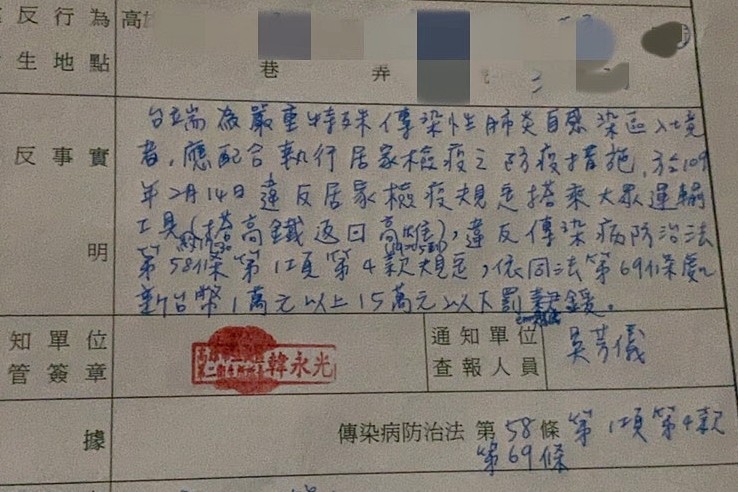 反行為 高雄
生地點 巷 弄
台端為嚴重特殊傳染性肺炎自感染區入境
者，應配合執行居家檢疫之防疫措施，於109
年2月14日違反居家檢疫規定搭乘大眾運輸
工具(搭高鐵返回高雄)，違反傳染病防治法
第58條第1項第4款規定，依同法第69條處
新台幣1萬元以上15萬元以下罰鍰。
反事實
明
知單位 管簽章
韓永光
通知單位
查報人員
吳芳儀
據
傳染病防治法 第58條第1項第4款
第69條